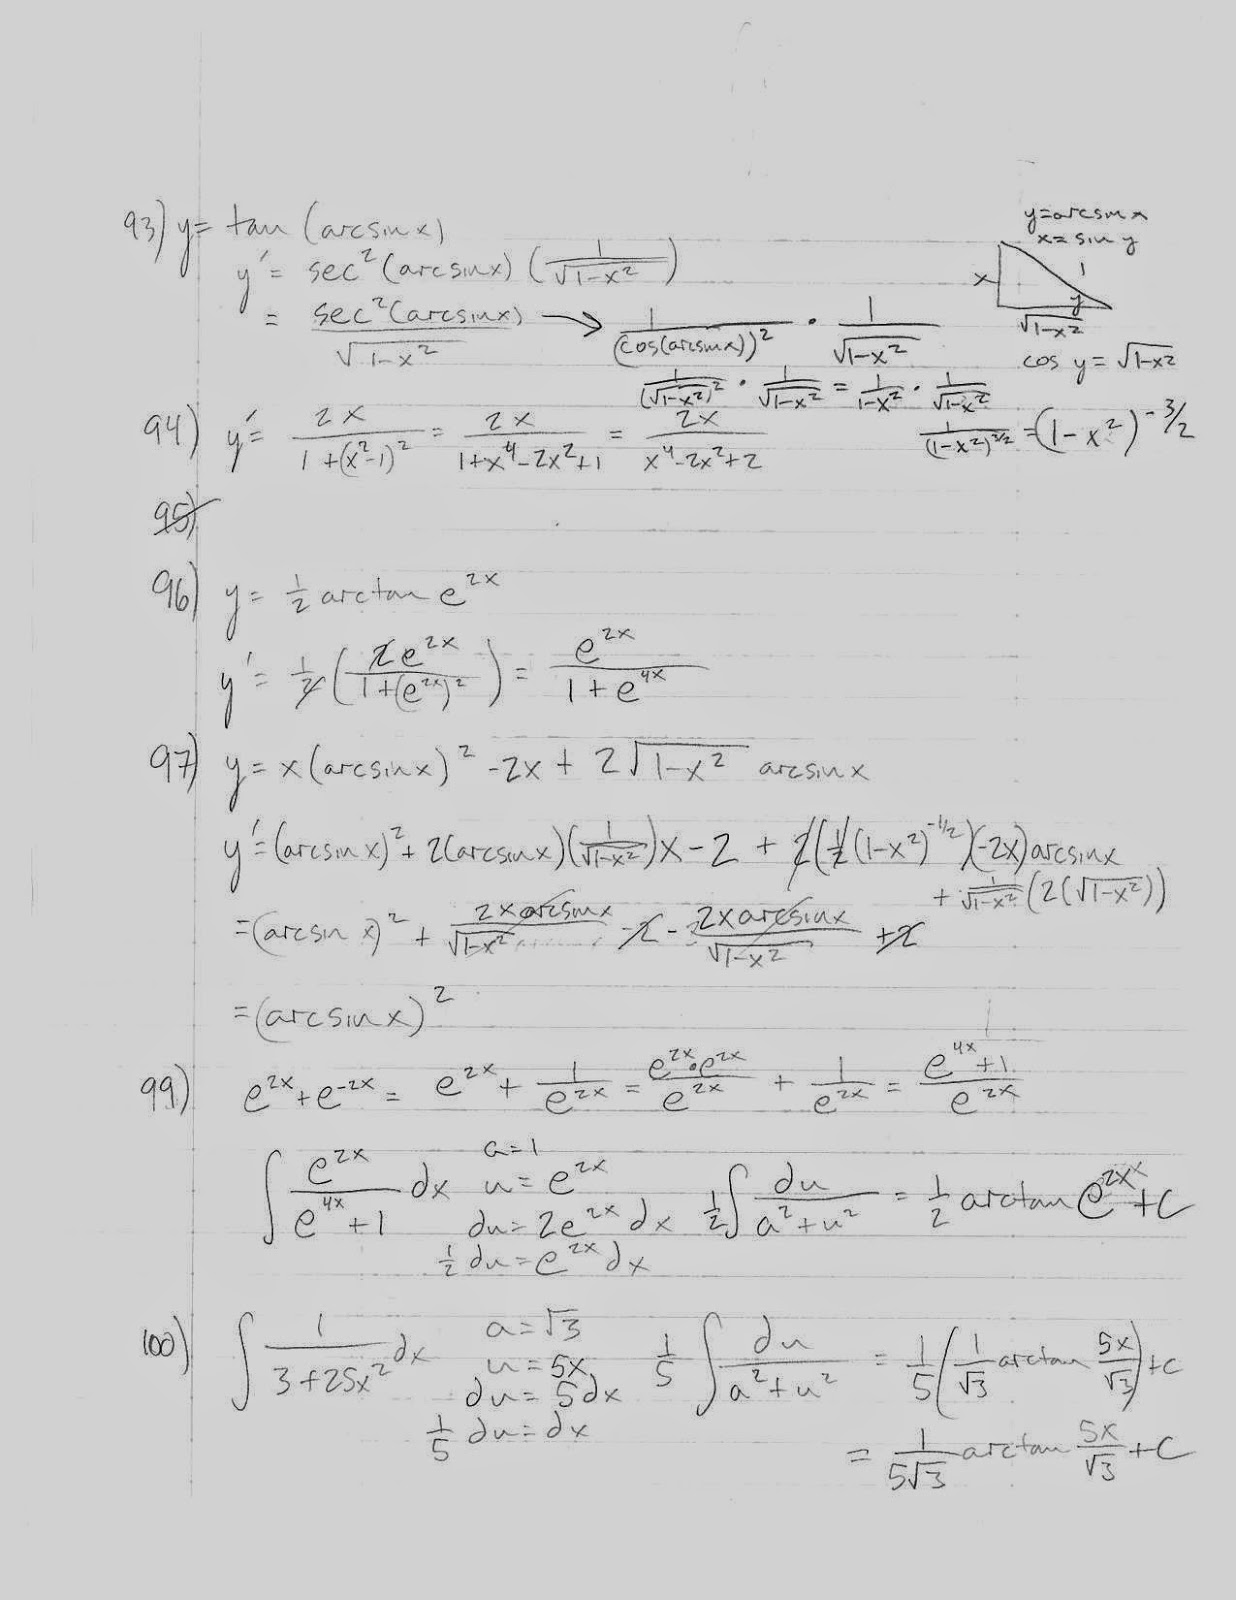 93) y = tan (arcsin x)
y' = sec²(arcsin x) (1/√(1-x²))
= sec²(arcsin x)/√(1-x²) → 1/(cos(arcsin x))² · 1/√(1-x²)
1/(√(1-x²))² · 1/√(1-x²) = 1/(1-x²) · 1/√(1-x²)
1/(1-x²)^(3/2) = (1-x²)^(-3/2)
y=arcsin x
x = sin y
x
1
y
√(1-x²)
cos y = √(1-x²)
94) y' = 2x/(1+(x²-1)²) = 2x/(1+x⁴-2x²+1) = 2x/(x⁴-2x²+2)
95)
96) y = ½ arctan e^(2x)
y' = ½ (2e^(2x)/(1+(e^(2x))²)) = e^(2x)/(1+e^(4x))
97) y = x(arcsin x)² -2x + 2√(1-x²) arcsin x
y' = (arcsin x)² + 2(arcsin x)(1/√(1-x²))x - 2 + 2(½(1-x²)^(-1/2))(-2x) arcsin x
+ 1/√(1-x²) (2(√(1-x²)))
= (arcsin x)² + 2x arcsin x/√(1-x²) - 2 - 2x arcsin x/√(1-x²) + 2
= (arcsin x)²
99) e^(2x) + e^(-2x) = e^(2x) + 1/e^(2x) = e^(2x)·e^(2x)/e^(2x) + 1/e^(2x) = (e^(4x)+1)/e^(2x)
∫ e^(2x)/(e^(4x)+1) dx
a=1
u = e^(2x)
du = 2e^(2x) dx
½ du = e^(2x) dx
½ ∫ du/(a²+u²) = ½ arctan e^(2x) + C
100) ∫ 1/(3+25x²) dx
a = √3
u = 5x
du = 5dx
1/5 du = dx
1/5 ∫ du/(a²+u²) = 1/5 (1/√3 arctan 5x/√3) + C
= 1/(5√3) arctan 5x/√3 + C